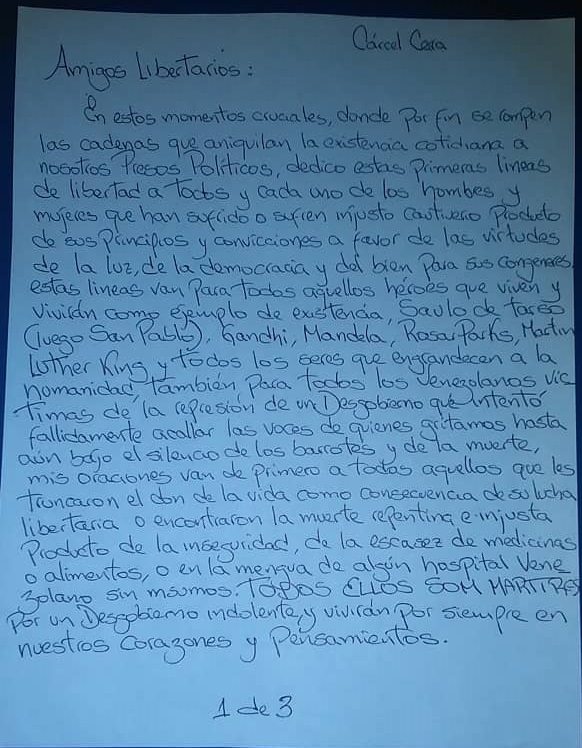 Cárcel Casa
Amigos Libertarios:
En estos momentos cruciales, donde por fin se rompen
las cadenas que aniquilan la existencia cotidiana a
nosotros Presos Políticos, dedico estas primeras lineas
de libertad a todos y cada uno de los hombres y
mujeres que han sufrido o sufren injusto cautiverio producto
de sus Principios y convicciones a favor de las virtudes
de la luz, de la democracia y del bien Para sus congeneres,
estas lineas van Para todos aquellos héroes que viven y
vivirán como ejemplo de existencia, Saulo de tarso
(luego San Pablo), Gandhi, Mandela, Rosa Parks, Martin
Luther King y todos los seres que engrandecen a la
homanidad, también Para todos los Venezolanos víc
timas de la represión de un Desgobierno que intentó
fallidamente acallar las voces de quienes gritamos hasta
aún bajo el silencio de los barrotes y de la muerte,
mis oraciones van de primero a todos aquellos que les
truncaron el don de la vida como consecuencia de su lucha
libertaria o encontraron la muerte repentina e injusta
Producto de la inseguridad, de la escasez de medicinas
o alimentos, o en la mengua de algún hospital Vene
zolano sin insumos. TODOS ELLOS SOM MARTIRES
por un Desgobierno indolente, y vivirán por siempre en
nuestros Corazones y Pensamientos.
1 de 3